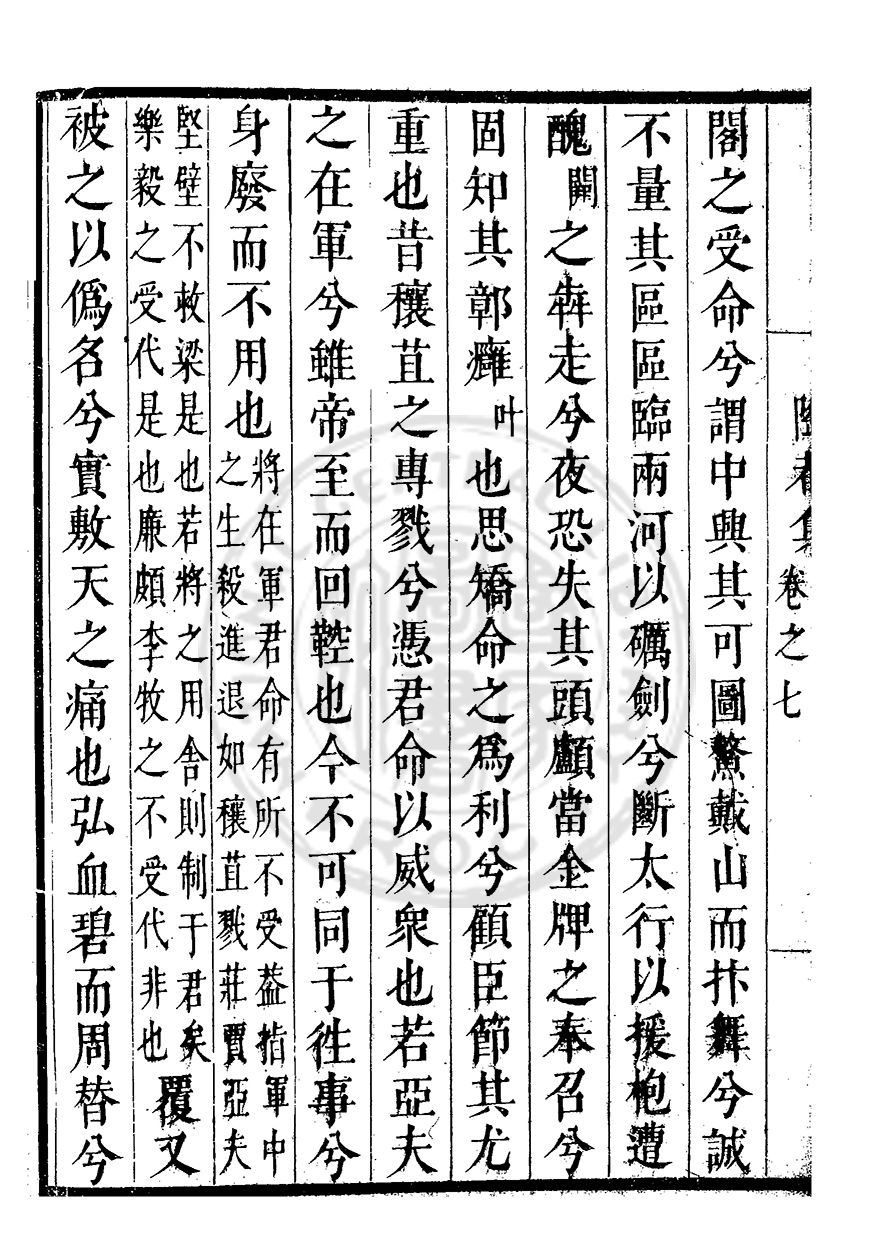 卷之七
閣之受命兮謂中興其可圖鰲戴山而抃舞兮誠
不量其區區臨兩河以礪劍兮斷太行以援枹遭
醜之犇走兮夜恐失其頭顱當金牌之奉召兮
固知其鄣癰叶也思矯命之爲利兮顧臣節其尤
重也昔穰苴之專戮兮憑君命以威衆也若亞夫
之在軍兮雖帝至而回鞚也今不可同于徃事兮
身廢而不用也
將在軍君命有所不受葢指軍中
之生殺進退如穰苴戮莊賈亞夫
堅壁不救梁是也若將之用舍則制于君矣
樂毅之受代是也廉頗李牧之不受代非也
覆又
被之以僞名兮實敷天之痛也弘血碧而周替兮